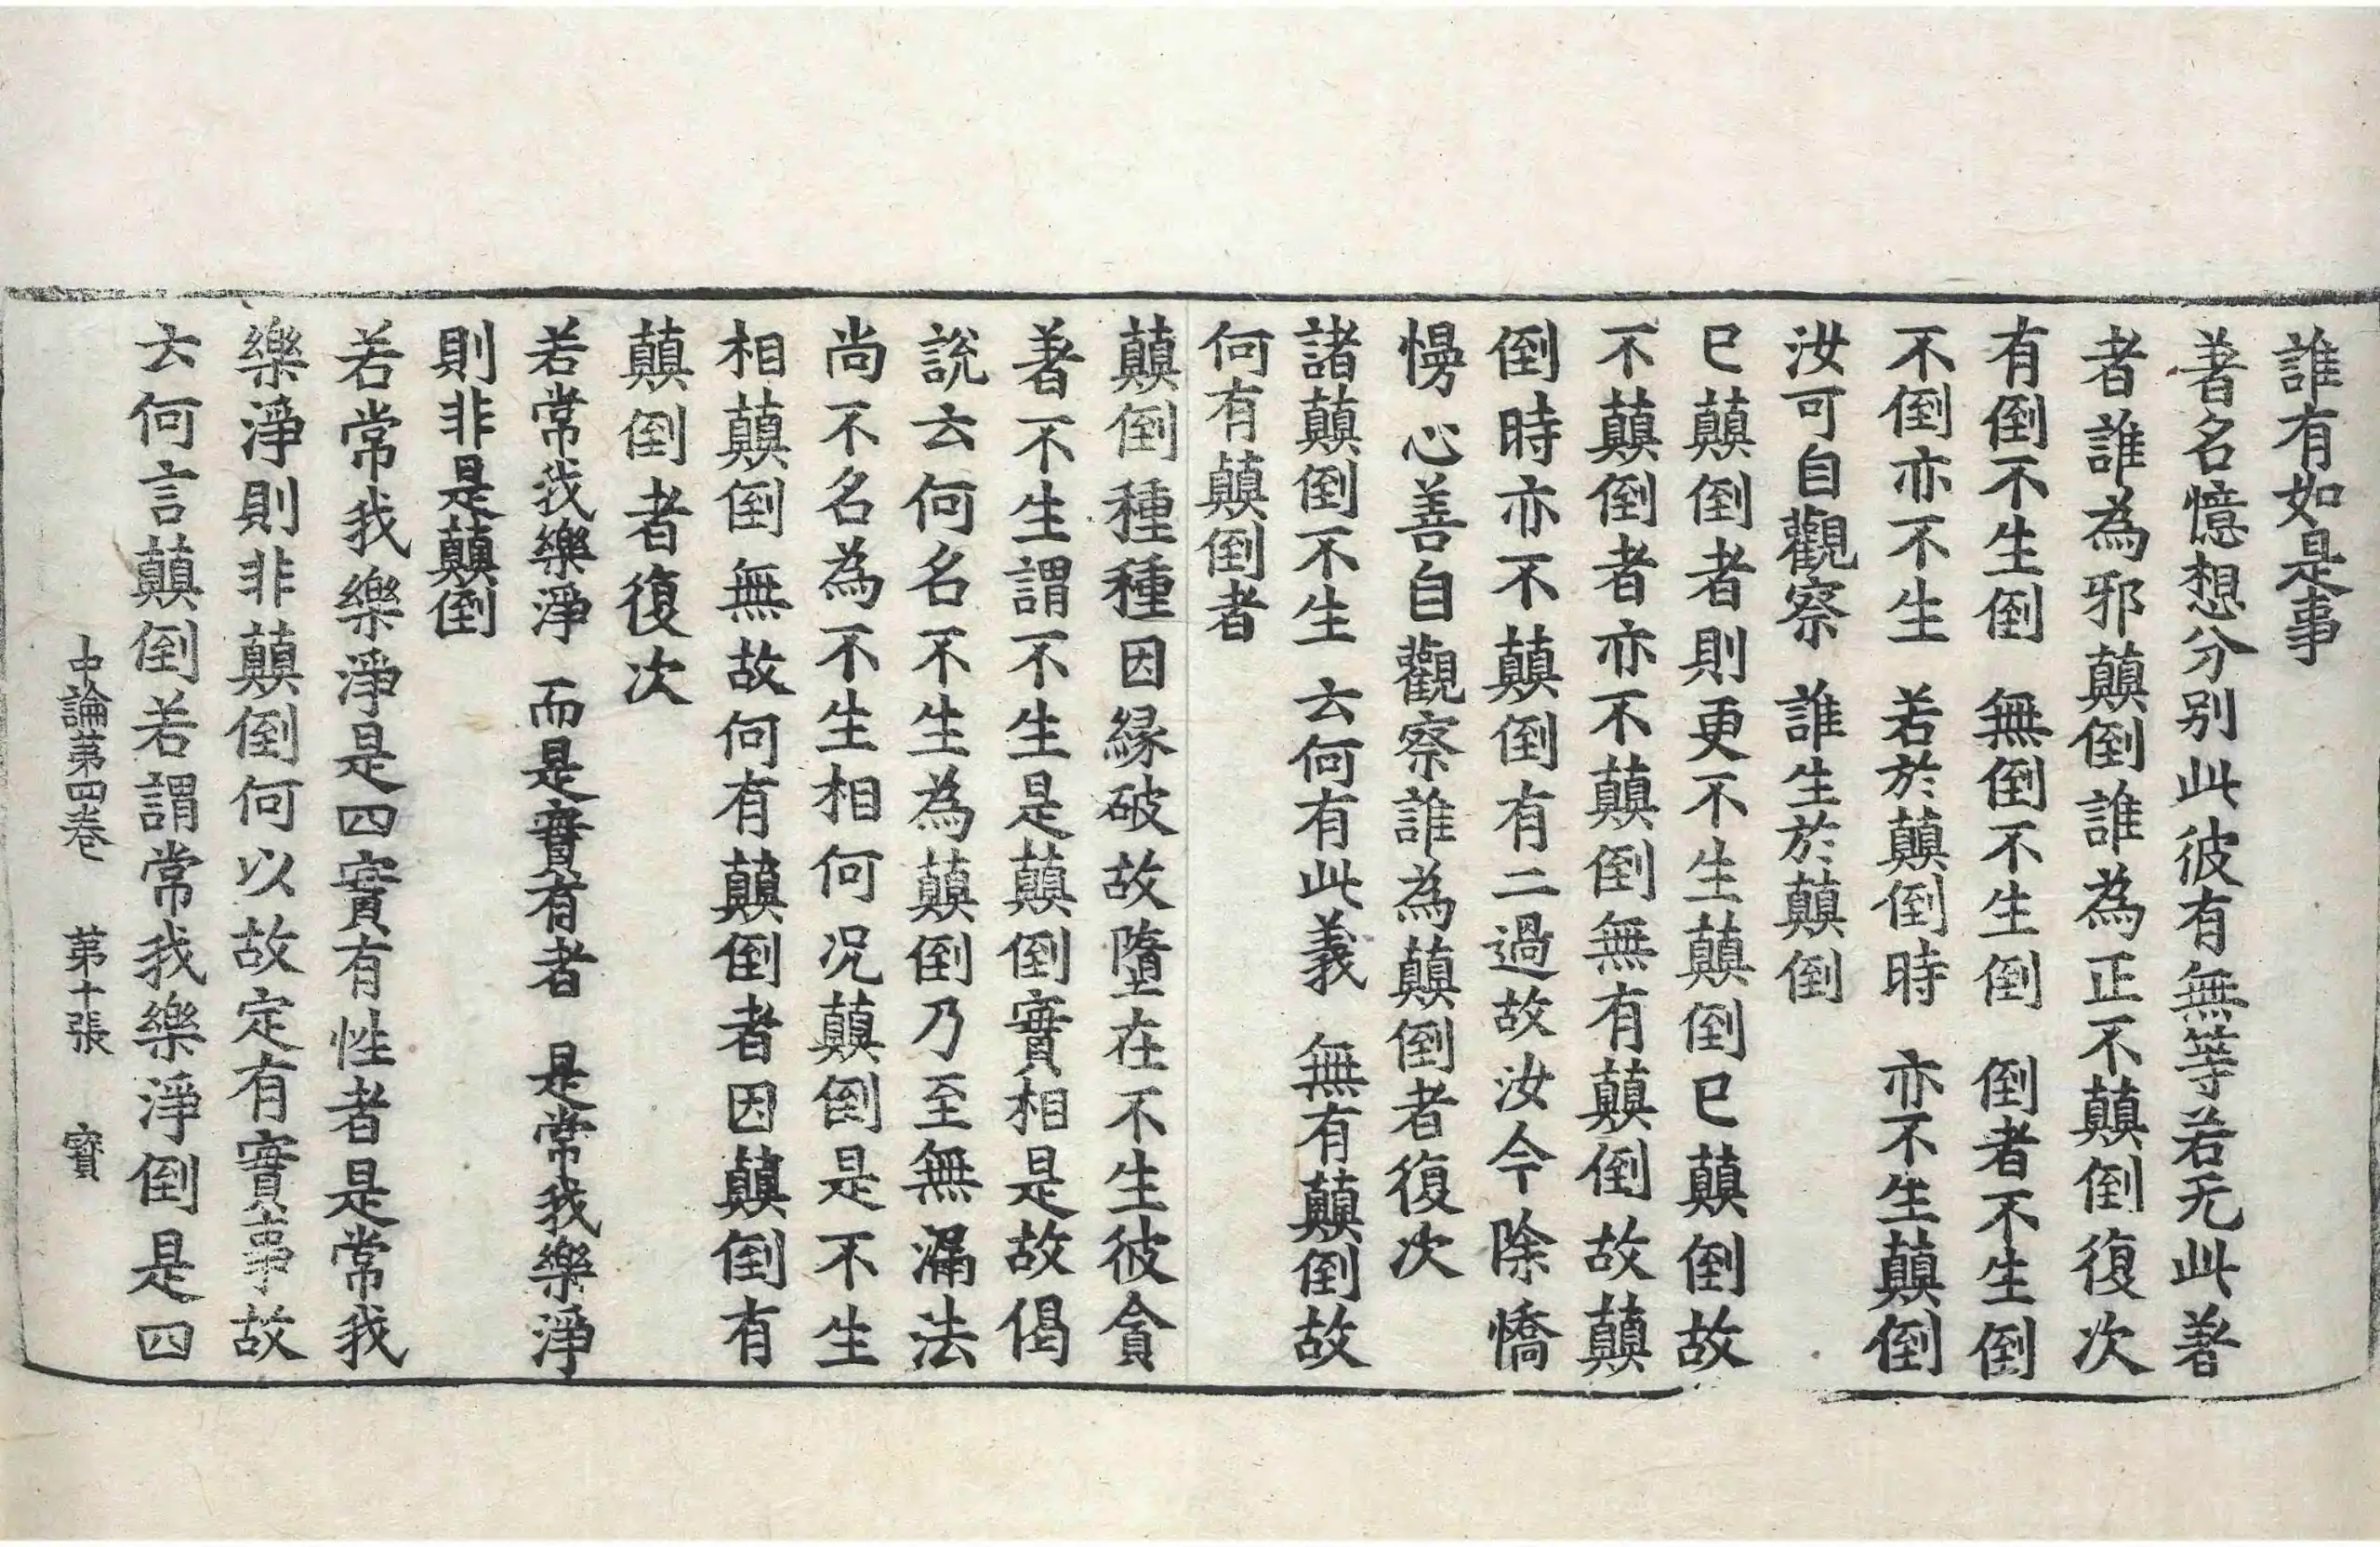 誰有如是事
著名憶想分別此彼有無等若无此著
者誰為邪顛倒誰為正不顛倒復次
有倒不生倒　無倒不生倒　倒者不生倒
不倒亦不生　若於顛倒時　亦不生顛倒
汝可自觀察　誰生於顛倒
已顛倒者則更不生顛倒已顛倒故
不顛倒者亦不顛倒無有顛倒故顛
倒時亦不顛倒有二過故汝今除憍
慢心善自觀察誰為顛倒者復次
諸顛倒不生　云何有此義　無有顛倒故
何有顛倒者
顛倒種種因緣破故墮在不生彼貪
著不生謂不生是顛倒實相是故偈
說云何名不生為顛倒乃至無漏法
尚不名為不生相何況顛倒是不生
相顛倒無故何有顛倒者因顛倒有
顛倒者復次
若常我樂淨　而是實有者　是常我樂淨
則非是顛倒
若常我樂淨是四實有性者是常我
樂淨則非顛倒何以故定有實事故
云何言顛倒若謂常我樂淨倒是四
中論第四卷　第十張　寳